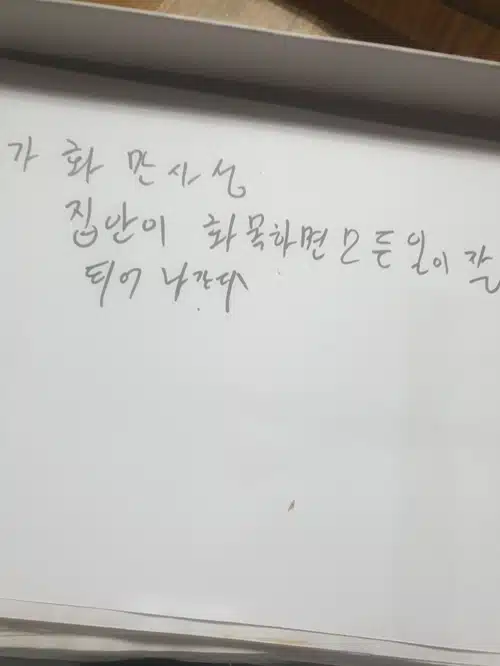 가 화 만 사 성
집안이 화목하면 모든일이 잘
되어 나간다